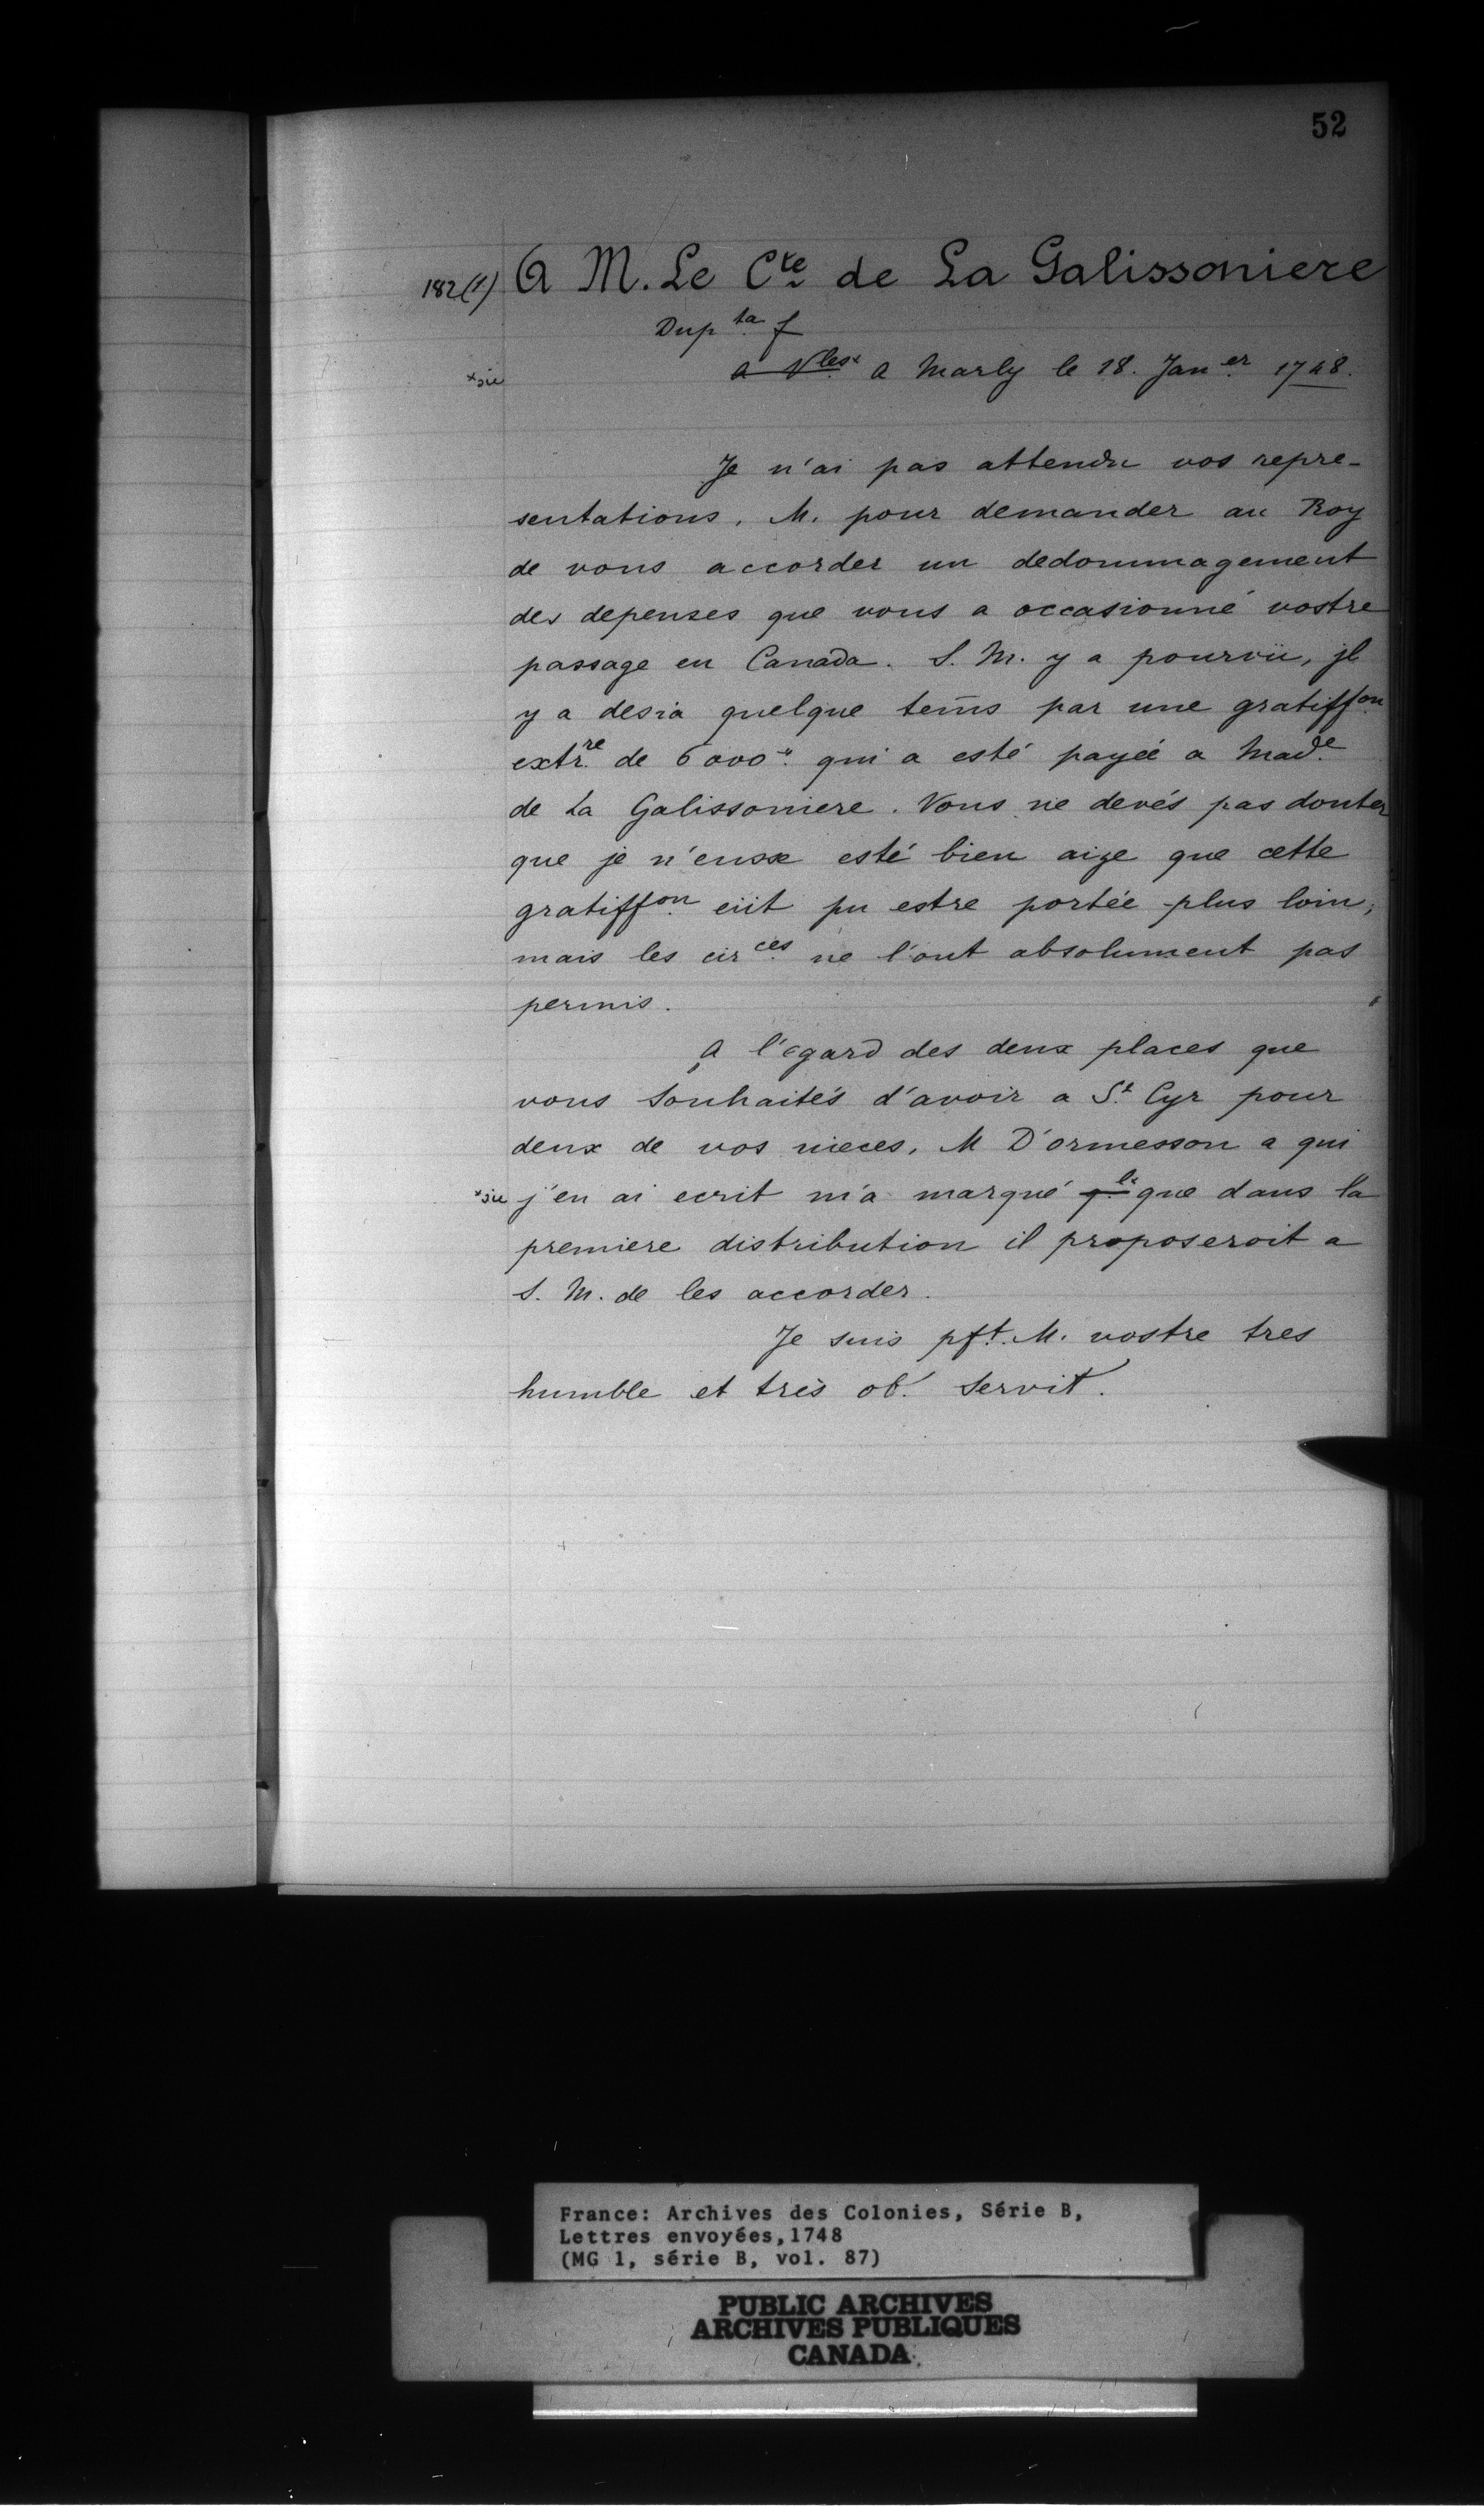 52
182(1) A M. Le Cte de La Galissoniere
Dupta f
xsic a Vles x a Marly le 18. Janer 1748.
Je n'ai pas attendu vos repre-
sentations, M. pour demander au Roy
de vous accorder un dedommagement
des depenses que vous a occasionné vostre
passage en Canada. S. M. y a pourvü, jl
y a desia quelque tems par une gratiffon
extre. de 6000# qui a esté payeé a Made.
de La Galissoniere. Vous ne devés pas douter
que je n'eusse esté bien aize que cette
gratiffon eüt pu estre portée plus loin,
mais les circes ne l'ont absolument pas
permis.
A l'egard des deux places que
vous souhaités d'avoir a St Cyr pour
deux de vos nieces, M D'ormesson a qui
xsic j'en ai ecrit m'a marqué q'il x que dans la
premiere distribution il proposeroit a
S. M. de les accorder.
Je suis pft. M. vostre tres
humble et très ob. servit.
France: Archives des Colonies, Série B,
Lettres envoyées,1748
(MG 1, série B, vol. 87)
PUBLIC ARCHIVES
ARCHIVES PUBLIQUES
CANADA